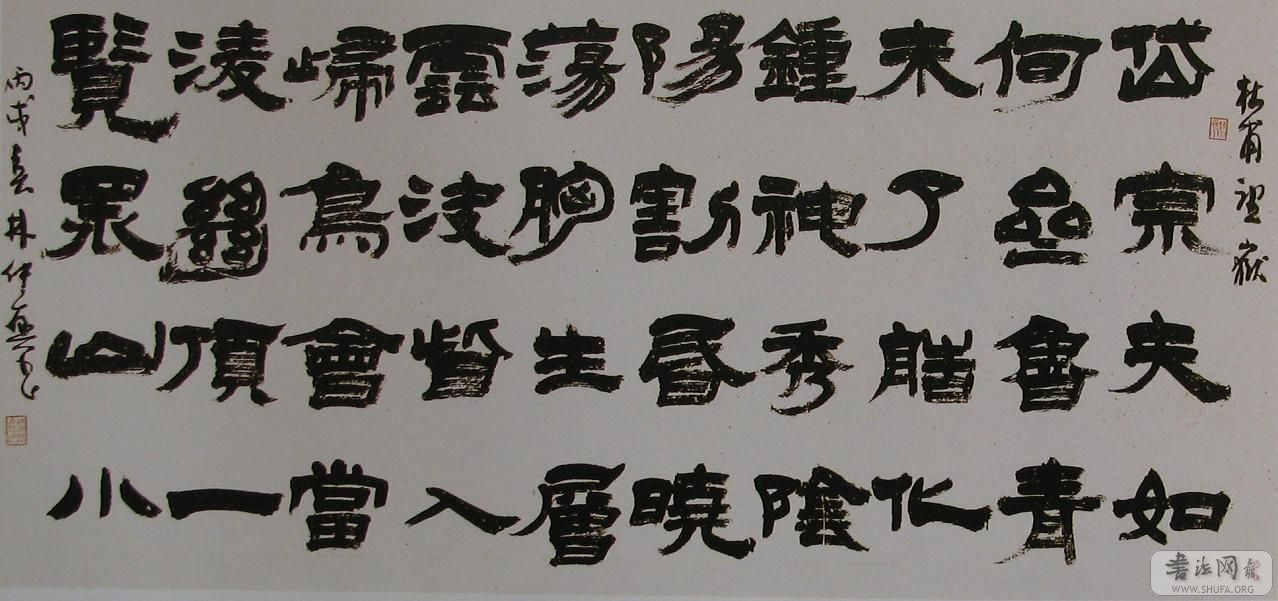 杜甫望嶽
岱宗夫如
何亝魯青
未了艁化
鍾神秀陰
陽割昏曉
蕩胸生層
雲決眥入
歸鳥會當
淩絕頂一
覽眾山小
丙戌春林仲興书
書法网
WWW.SHUFA.ORG